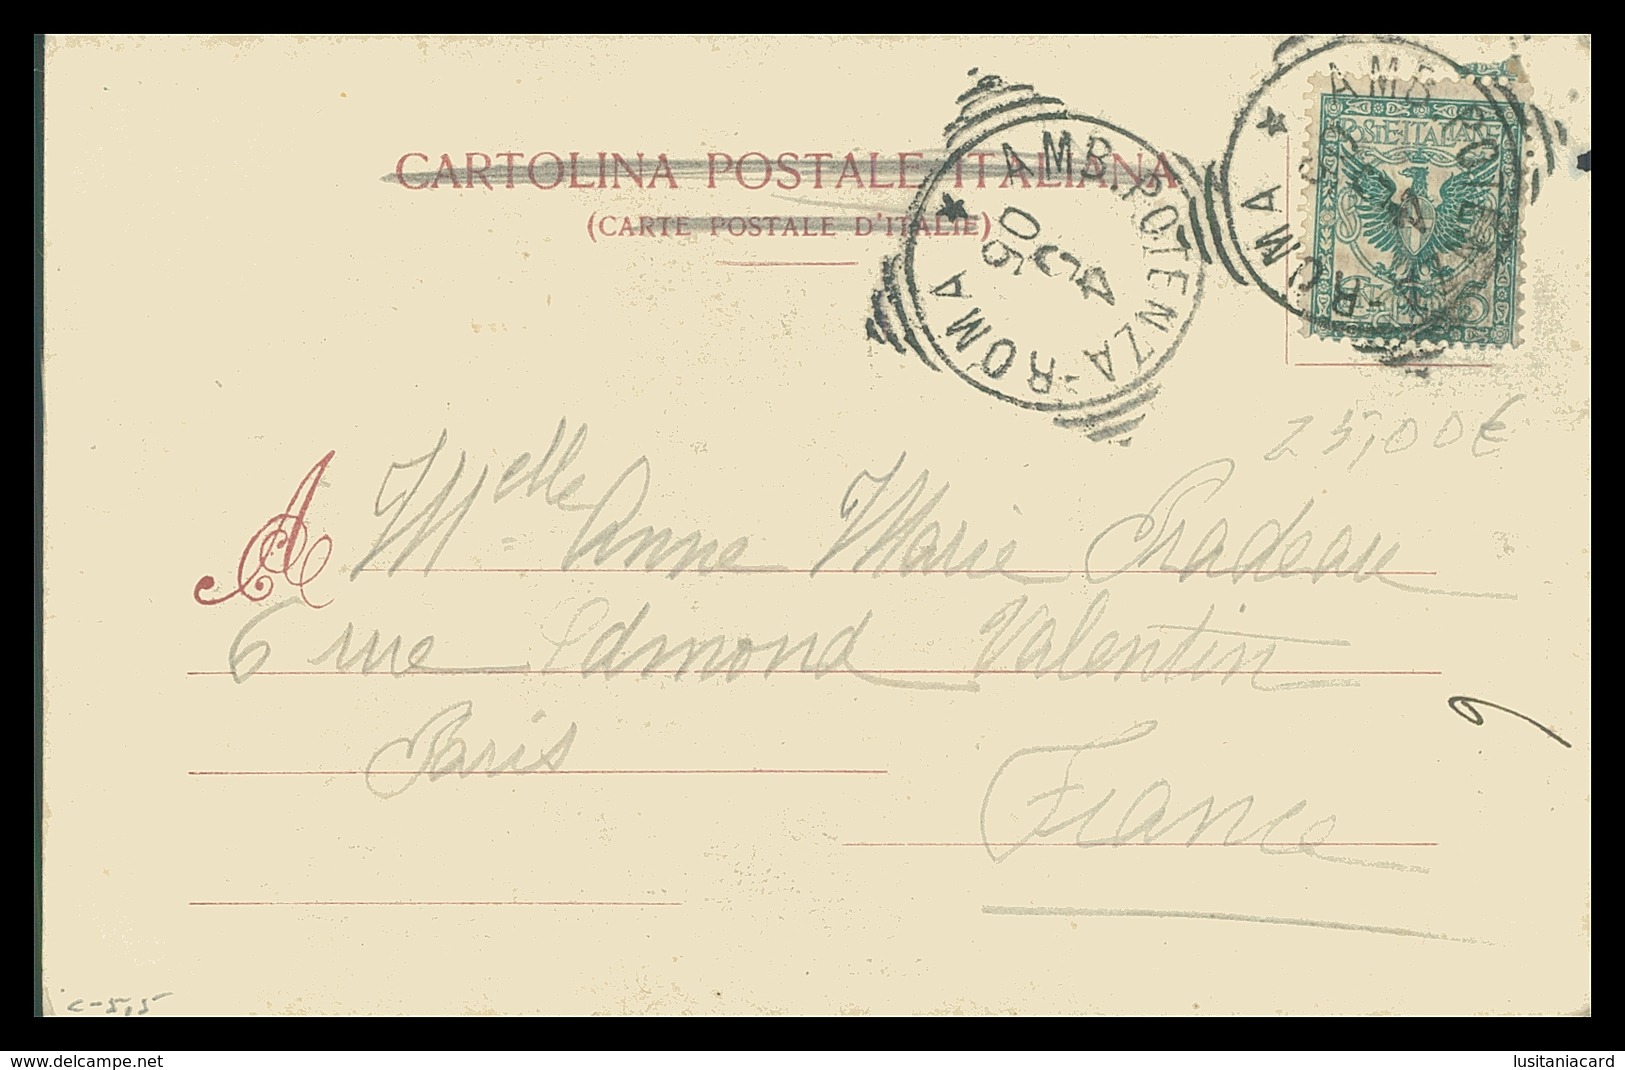 CARTOLINA POSTALE ITALIANA
(CARTE POSTALE D'ITALIE)
AMB. POTENZA-ROMA
4 05
AMB POTENZA-ROMA
POSTE ITALIANE
5
25,00€
A Melle Anne Marie Pradeau
6 rue Edmond Valentin
Paris
France
c-5,5
www.delcampe.net
lusitaniacard